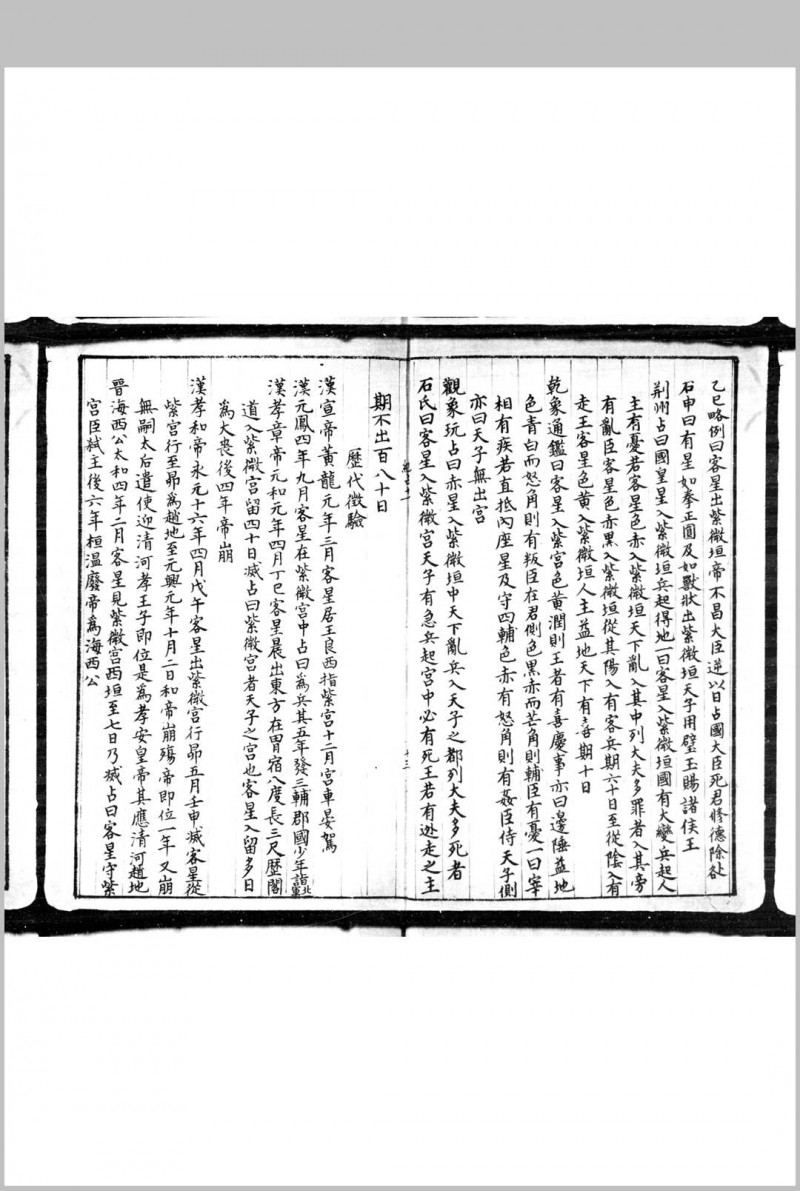 乙巳略例曰客星出紫微垣帝不昌大臣逆以日占國大臣死君修德除殃
石申曰有星如拳正圓及如獸狀出紫微垣天子用璧玉賜諸侯王
荆州占曰國皇星入紫微垣兵起得地一曰客星入紫微垣國有大變兵起人
主有憂若客星色赤入紫微垣天下亂入其中列大夫多罪者入其旁
有亂臣客星色赤黑入紫微垣從其陽入有客兵期六十日至從陰入有
走王客星色黄入紫微垣人主益地天下有喜期十日
乾象通鑑曰客星入紫宫色黄潤則王者有喜慶事亦曰邊陲益地
色青白而怒角則有叛臣在君側色黑赤而芒角則輔臣有憂一曰宰
相有疾若直抵內座星及守四輔色赤有怒角則有姦臣侍天子側
亦曰天子無出宫
觀象玩占曰赤星入紫微垣中天下亂兵入天子之都列大夫多死者
石氏曰客星入紫微宫天子有急兵起宫中必有死王若有逊走之主
十三
期不出百八十日
歷代徵驗
漢宣帝黄龍元年三月客星居王良西指紫宫十二月宫車晏駕
漢元鳳四年九月客星在紫微宫中占曰為兵其五年發三輔郡國少年詣北軍
漢孝章帝元和元年四月丁巳客星晨出東方在胃宿八度長三尺歷閣
道入紫微宫留四十日滅占曰紫微宫者天子之宫也客星入留多日
為大喪後四年帝崩
漢孝和帝永元十六年四月戊午客星出紫微宫行昴五月壬申滅客星從
紫宫行至昴為趙地至元興元年十月二日和帝崩殤帝即位一年又崩
無嗣太后遣使迎清河孝王子即位是為孝安皇帝其應清河趙地
晋海西公太和四年二月客星見紫微宫西垣至七日乃滅占曰客星守紫
宫臣弑主後六年桓温廢帝為海西公